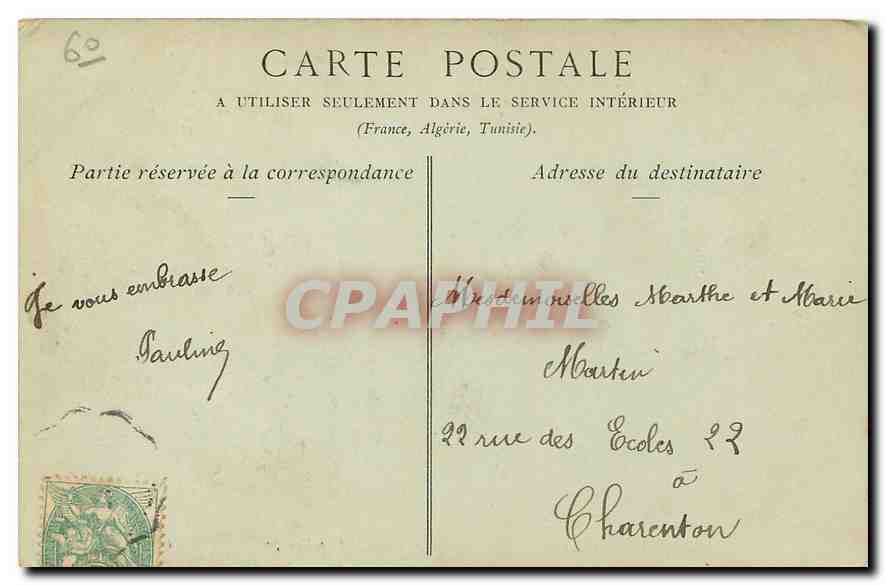 60
CARTE POSTALE
A UTILISER SEULEMENT DANS LE SERVICE INTÉRIEUR
(France, Algérie, Tunisie).
Partie réservée à la correspondance
Adresse du destinataire
Je vous embrasse
Pauline
CPAPHIL
Mesdemoiselles Marthe et Marie
Martin
22 rue des Ecoles 22
à
Charenton